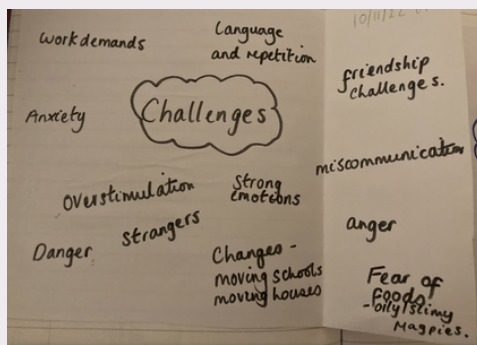 10/11/22
work demands
Language
and repetition
friendship
challenges.
Anxiety
Challenges
miscommunication
Overstimulation
Strong
emotions
strangers
anger
Danger
Changes -
moving schools
moving houses
Fear of
foods!
-oily/slimy
Magpies.